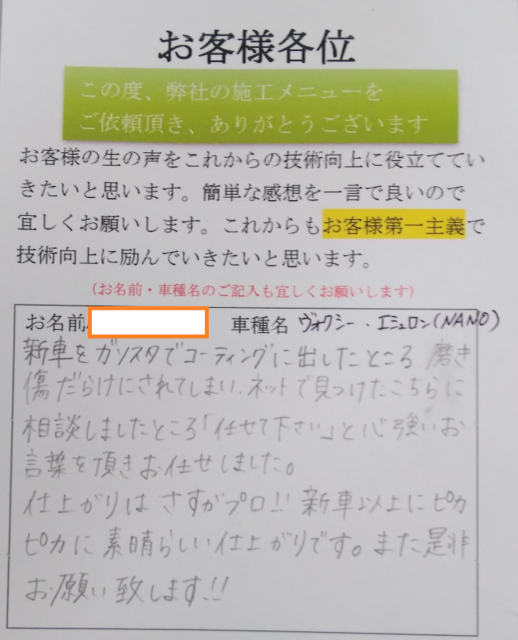 お客様各位
この度、弊社の施工メニューを
ご依頼頂き、ありがとうございます
お客様の生の声をこれからの技術向上に役立ててい
きたいと思います。簡単な感想を一言で良いので
宜しくお願いします。これからもお客様第一主義で
技術向上に励んでいきたいと思います。
(お名前・車種名のご記入も宜しくお願いします)
お名前 車種名 ヴォクシー・エシュロン(NANO)
新車をガソスタでコーティングに出したところ 磨き
傷だらけにされてしまい、ネットで見つけたこちらに
相談しましたところ「任せて下さい」と心強いお
言葉を頂きお任せしました。
仕上がりは さすがプロ!! 新車以上にピカ
ピカに 素晴らしい仕上がりです。また是非
お願い致します!!